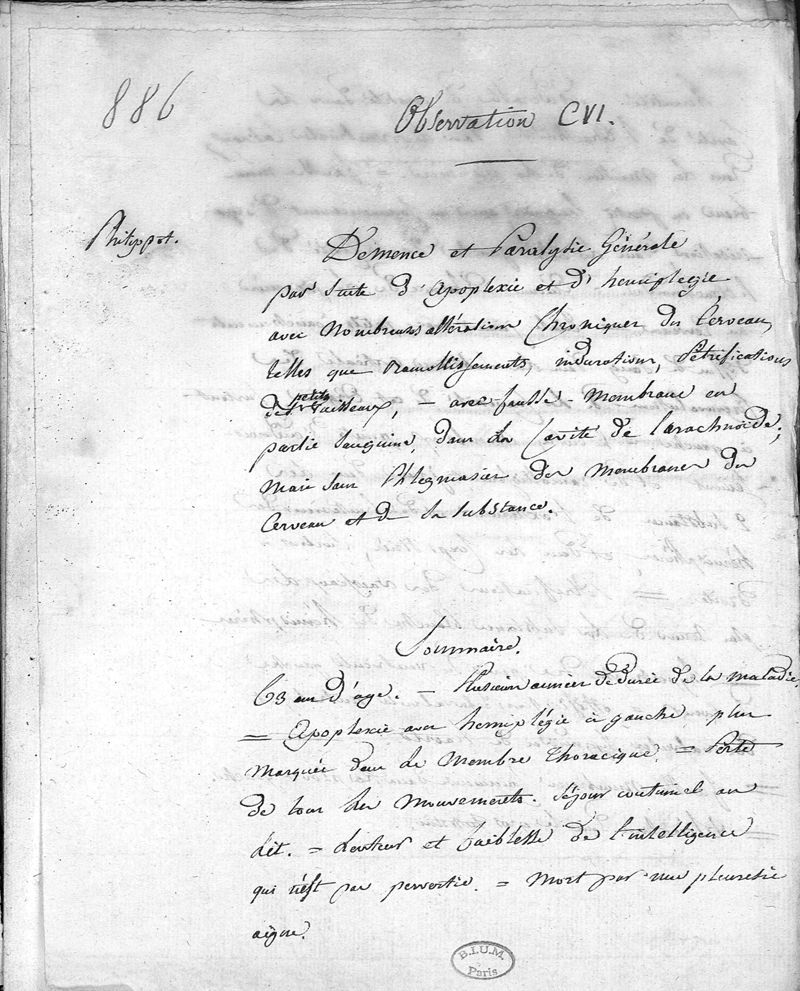 886
Observation CVI.
Philippot.
Démence et Paralysie Générale
par suite d'apoplexie et d'hémiplégie,
avec nombreuses altération Chroniques du Cerveau,
telles que Ramollissements, induration, Pétrifications
des petits vaisseaux, — avec fausse-membrane en
partie sanguine, dans la Cavité de l'arachnoïde;
mais sans Phlegmasies des membranes du
Cerveau et de sa substance.
Sommaire.
63 ans d'age. — Plusieurs années de durée de la maladie,
= Apoplexie avec hemiplégie à gauche plus
marquée dans le membre thoracique. = Perte
de tous les mouvements. Séjour continuel au
lit. = Lenteur et faiblesse de l'intelligence
qui n'est pas pervertie. = mort par une pleuresie
aigue.
B.I.U.M.
Paris